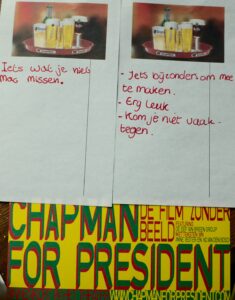 Iets wat je niet
mag missen.
- Iets bijzonders om mee
te maken.
- Erg leuk
- Kom je niet vaak
tegen.
CHAPMAN
DE FILM ZONDER
BEELD
FOR PRESIDENT
WWW.CHAPMANFORPRESIDENT.COM